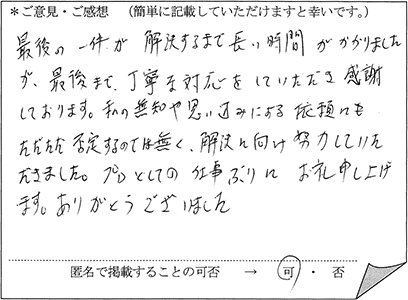 *ご意見・ご感想 (簡単に記載していただけますと幸いです。)
最後の一件が解決するまで長い時間がかかりました
が、最後まで、丁寧な対応をしていただき感謝
しております。私の無知や思い込みによる依頼にも
ただただ否定するのでは無く、解決に向け努力していた
だきました。プロとしての仕事ぶりにお礼申し上げ
ます。ありがとうございました
匿名で掲載することの可否 → 可・否